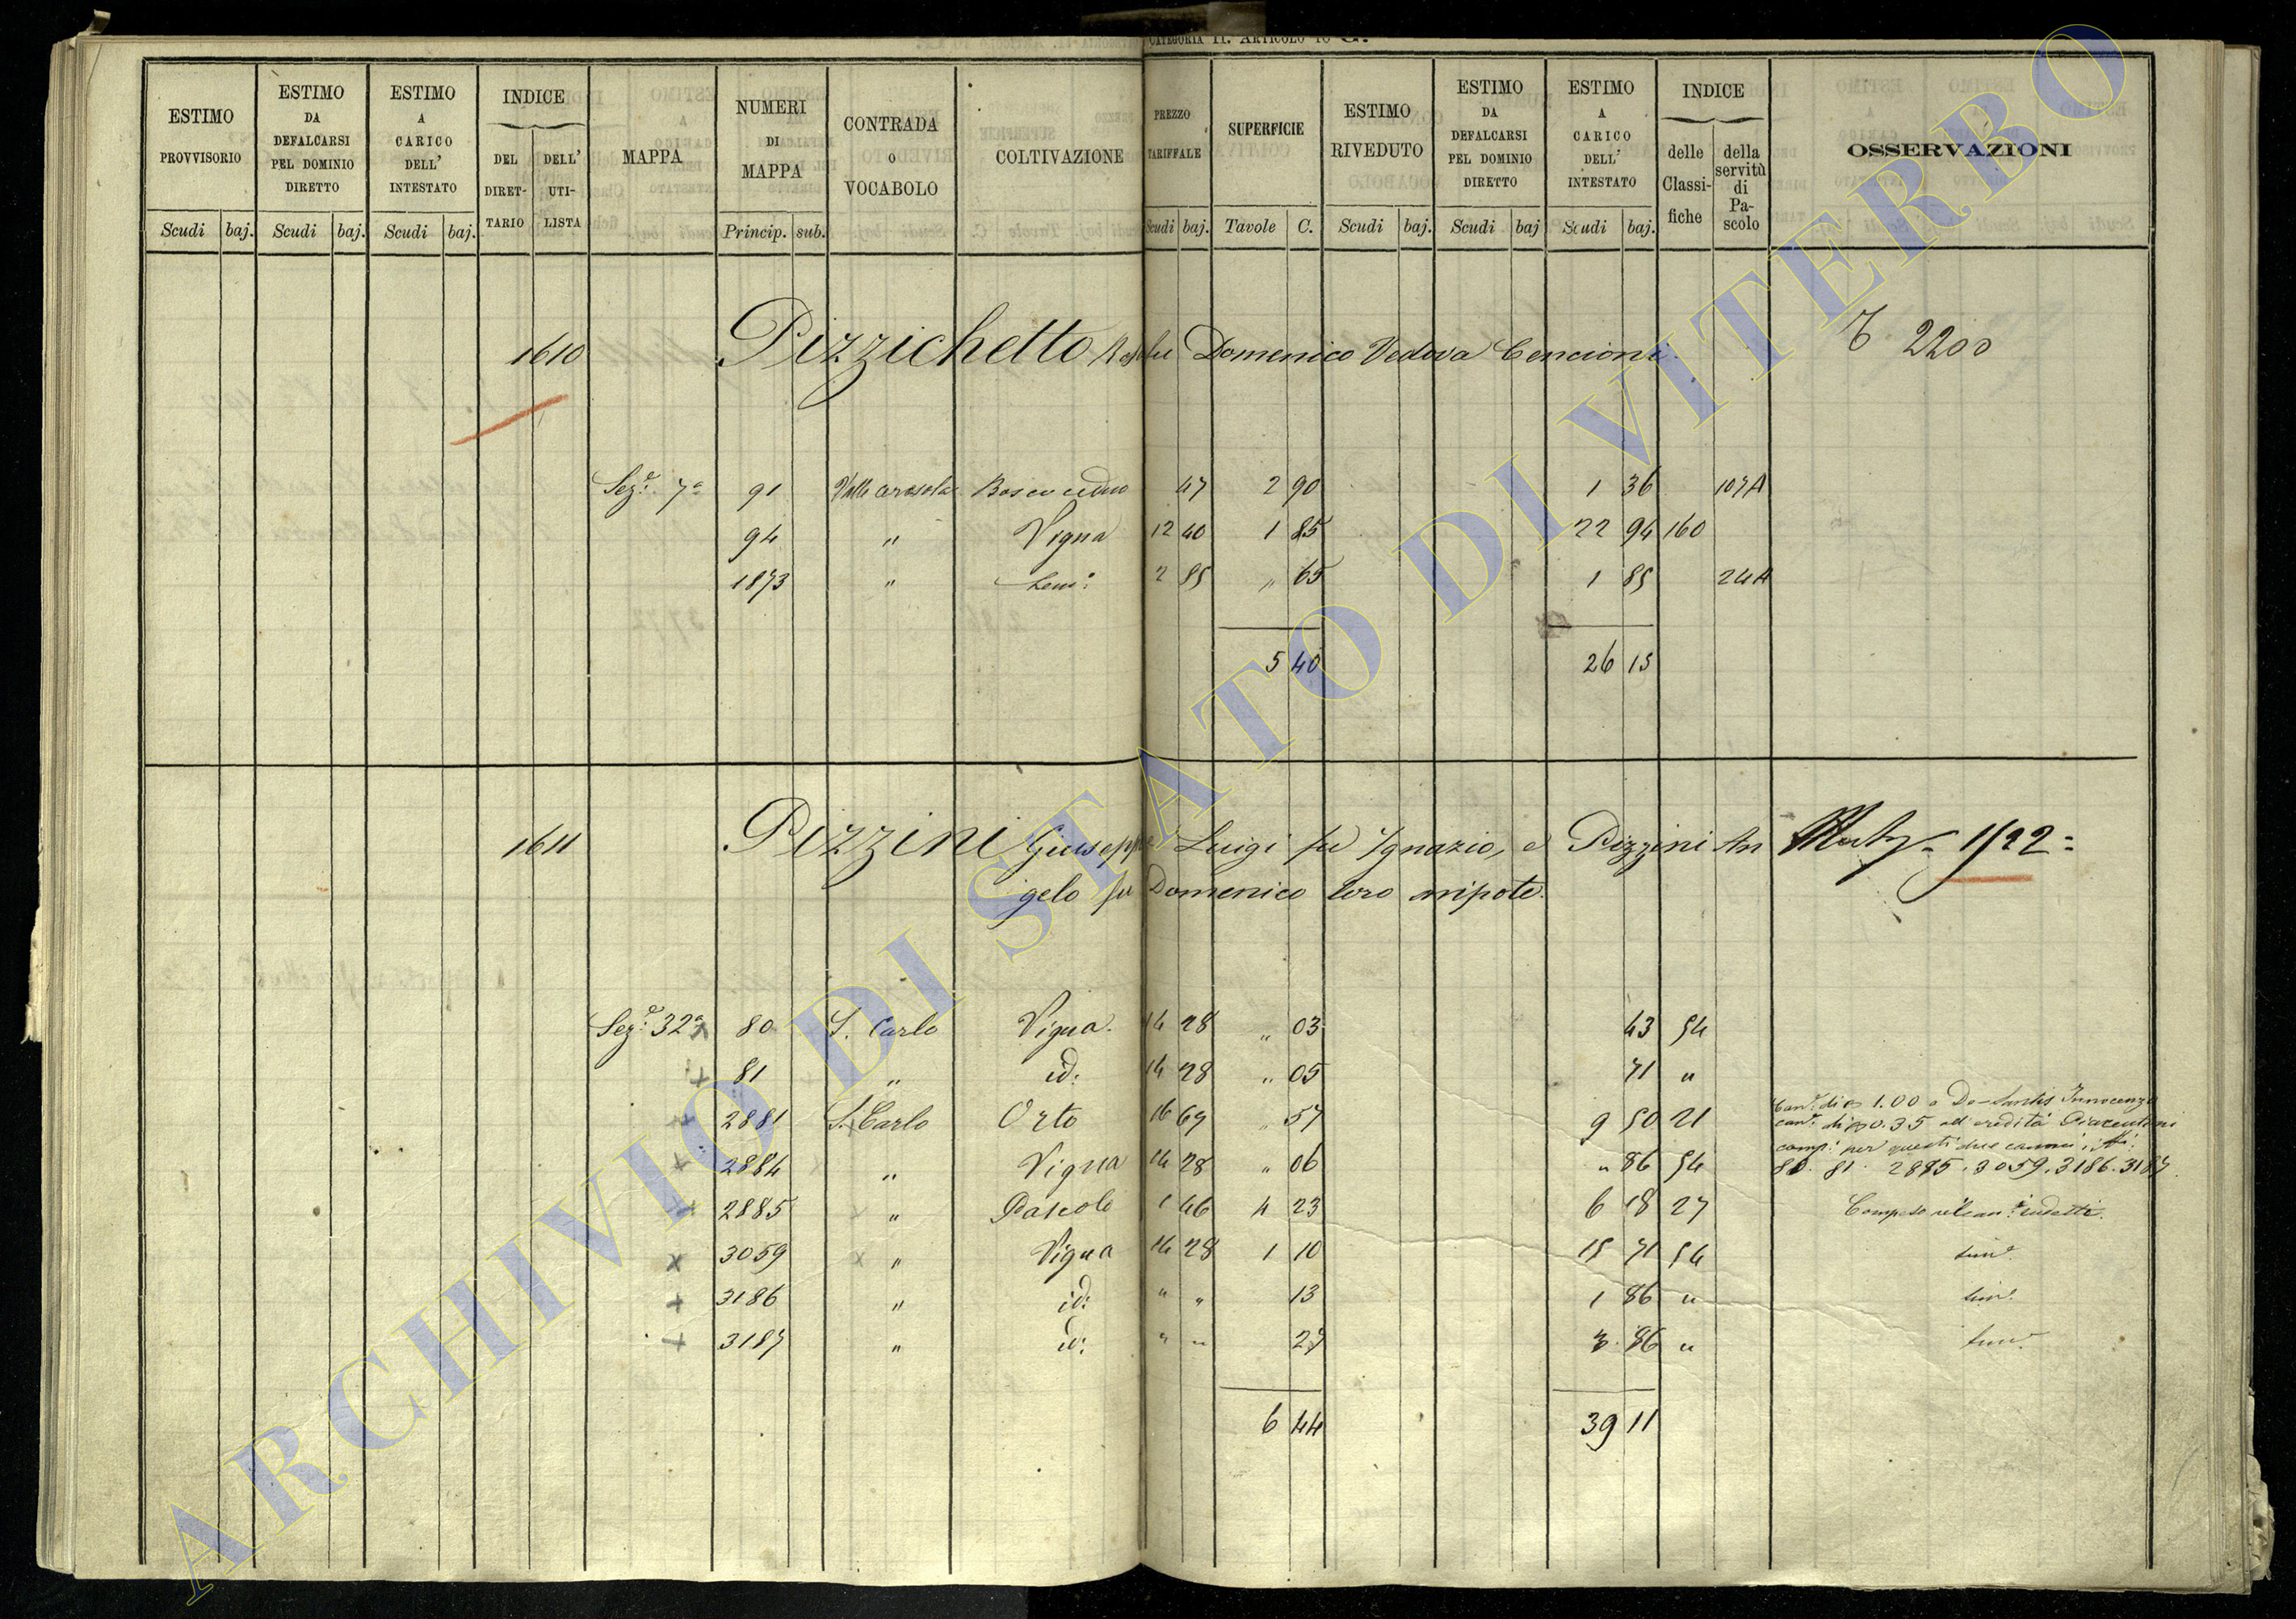 CATEGORIA II. ARTICOLO 10 G.
ESTIMO PROVVISORIO Scudi baj. | ESTIMO DA DEFALCARSI PEL DOMINIO DIRETTO Scudi baj. | ESTIMO A CARICO DELL' INTESTATO Scudi baj. | INDICE DEL DIRET-TARIO DELL' UTI-LISTA | MAPPA | NUMERI DI MAPPA Princip. sub. | CONTRADA O VOCABOLO | COLTIVAZIONE | PREZZO TARIFFALE Scudi baj. | SUPERFICIE Tavole C. | ESTIMO RIVEDUTO Scudi baj. | ESTIMO DA DEFALCARSI PEL DOMINIO DIRETTO Scudi baj | ESTIMO A CARICO DELL' INTESTATO Scudi baj. | INDICE delle Classi-fiche della servitù di Pa-scolo | OSSERVAZIONI
1610 Pizzichetto fu Domenico Vedova Cencioni 2200
Sez.e 7a 91 Valle Bosco ceduo 47 2 90 1 36 107A
94 " Vigna 12 40 1 85 22 94 160
1873 " Sem: 2 85 " 65 1 85 24A
5 40 26 15
1611 Pizzini Giuseppe Luigi fu Ignazio, e Pizzini An 1722=
gelo fu Domenico loro nipote.
Sez.e 32a x 80 S. Carlo Vigna. 14 28 " 03 43 54
x 81 " id: 14 28 " 05 71 "
x 2881 S. Carlo Orto 16 67 " 57 9 50 21 Can.e di 1.00 a De-Santis Innocenzo
can.e di 0.35 all'eredità Piacentini
comp: per questi due canoni i
x 2884 " Vigna 14 28 " 06 " 86 54 80. 81. 2885. 3059. 3186. 3187.
x 2885 " Pascolo 1 46 4 23 6 18 27 Compreso
x 3059 " Vigna 14 28 1 10 15 71 54
x 3186 " id: " " 13 1 86 "
x 3187 " id: " " 27 3 86 "
6 44 39 11
ARCHIVIO DI STATO DI VITERBO